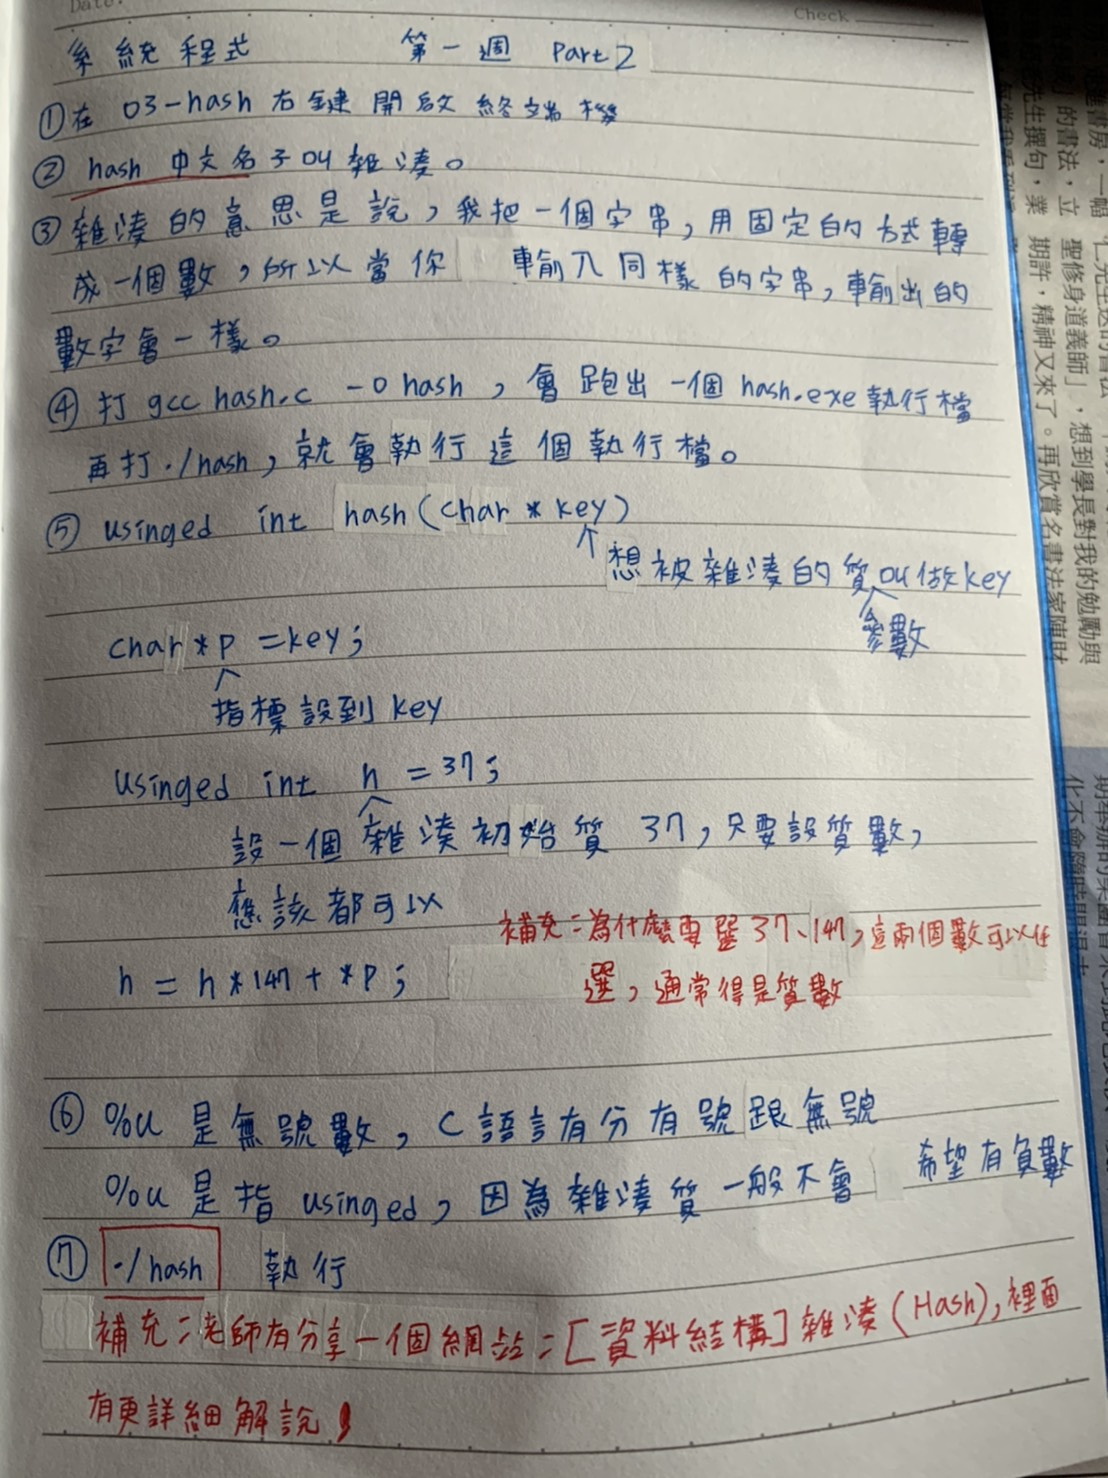 Date.
Check
系統程式 第一週 Part2
①在 03-hash 右鍵開啟終端機
② hash 中文名子叫雜湊。
③ 雜湊的意思是說，我把一個字串，用固定的方式轉
成一個數，所以當你 輸入同樣的字串，輸出的
數字會一樣。
④ 打 gcc hash.c -o hash，會跑出一個 hash.exe 執行檔
再打 ./hash，就會執行這個執行檔。
⑤ usinged int hash(char * key)
想被雜湊的質叫做key
參數
char *p = key;
指標設到 key
usinged int h = 37;
設一個雜湊初始質 37，只要設質數，
應該都可以
補充：為什麼要選 37、147，這兩個數可以任
選，通常得是質數
h = h*147 + *p;
⑥ %u 是無號數，C語言有分有號跟無號
%u 是指 usinged，因為雜湊質一般不會 希望有負數
⑦ ./hash 執行
補充：老師有分享一個網站：[資料結構] 雜湊 (Hash)，裡面
有更詳細解說！
的書法，立
聖修身道義師」，想到學長對我的勉勵與
期許，精神又來了。再欣賞名書法家陳財